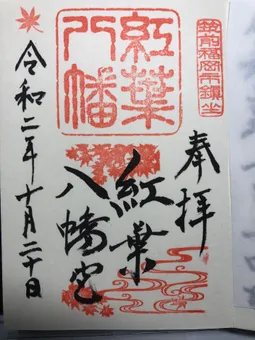 奉拝
筑前福岡市鎮坐
紅葉
八幡
紅葉
八幡宮
令和二年十月二十日